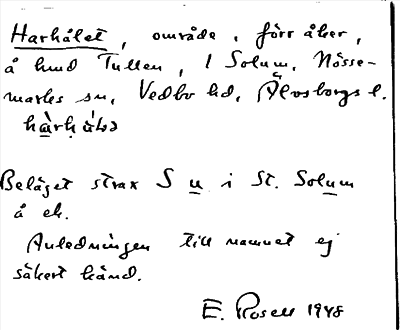 Harhålet, område, förr åker,
å hmd Tullen, l Solum, Nösse-
marks sn, Vedbo hd, Älvsborgs l.
Beläget strax S u i St. Solum
å ek.
Anledningen till namnet ej
säkert känd.
E. Rosell 1948